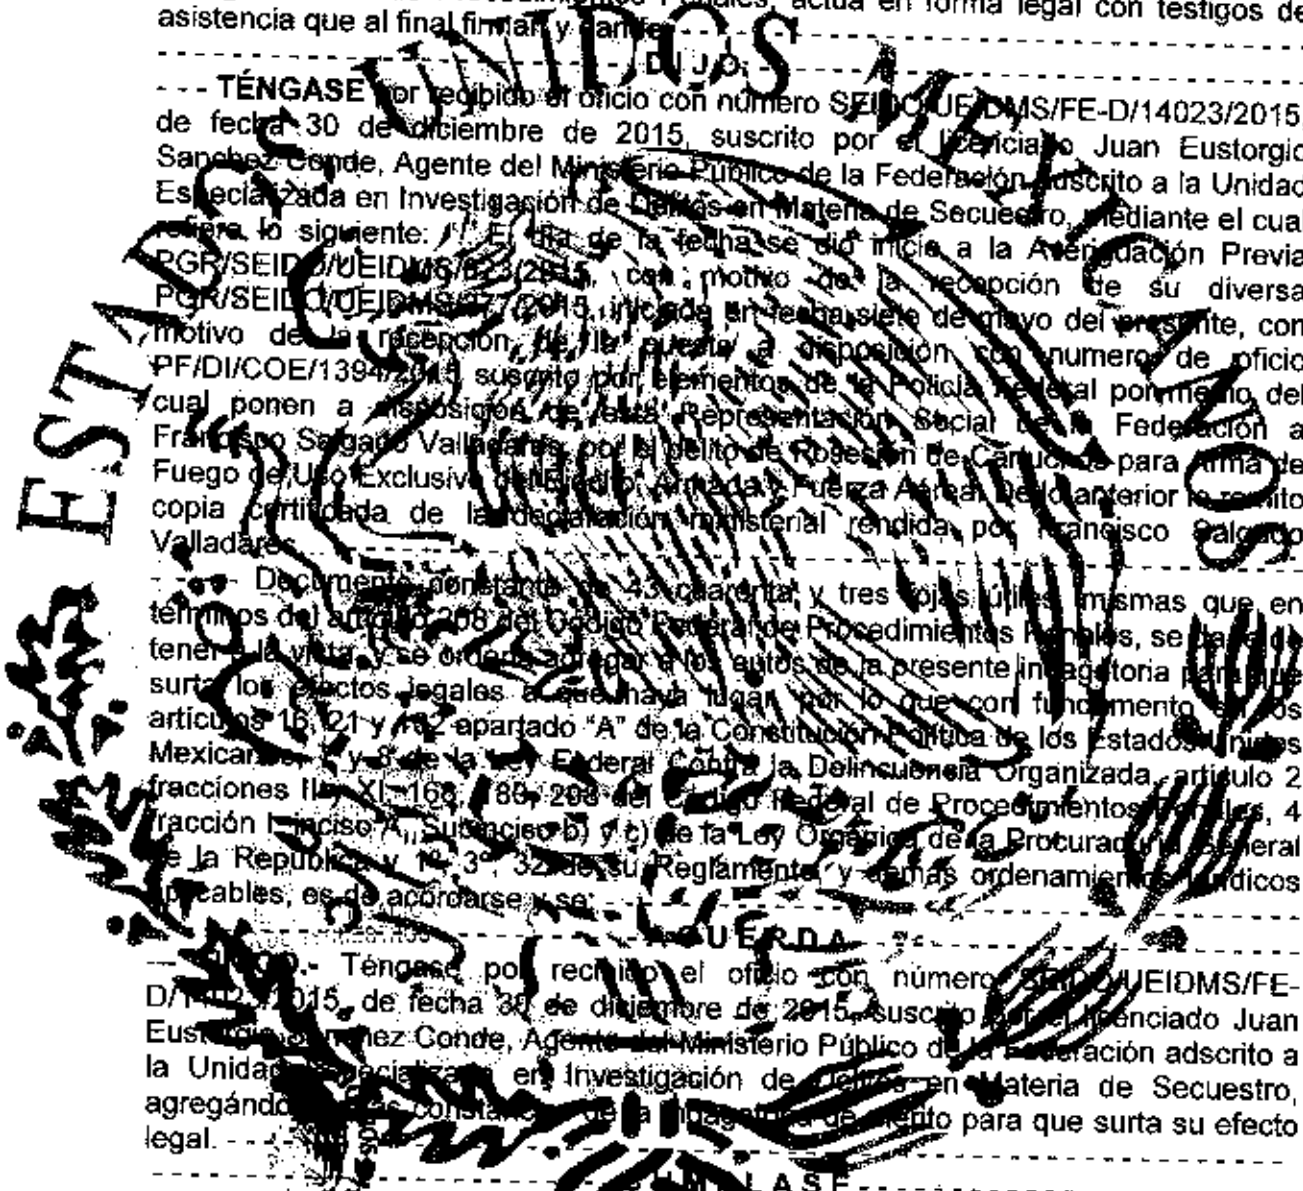 Procedimientos Penales, actúa en forma legal con testigos de
asistencia que al final firman y dan fe.
DIJO
- - - TÉNGASE por recibido el oficio con número SEIDO/UEIDMS/FE-D/14023/2015,
de fecha 30 de diciembre de 2015, suscrito por el licenciado Juan Eustorgio
Sanchez Conde, Agente del Ministerio Público de la Federación adscrito a la Unidad
Especializada en Investigación de Delitos en Materia de Secuestro, mediante el cual
refiere lo siguiente: "El día de la fecha se dio inicio a la Averiguación Previa
PGR/SEIDO/UEIDMS/823/2015, con motivo de la recepción de su diversa
PGR/SEIDO/UEIDMS/377/2015, iniciada en fecha siete de mayo del presente, con
motivo de la recepción de la puesta a disposición con numero de oficio
PF/DI/COE/1394/2015, suscrito por elementos de la Policía Federal por medio del
cual ponen a disposición de esta Representación Social de la Federación a
Francisco Salgado Valladares, por el delito de Posesión de Cartuchos para Arma de
Fuego de Uso Exclusivo del Ejército, Armada y Fuerza Aérea. De lo anterior le remito
copia certificada de la declaración ministerial rendida por Francisco Salgado
Valladares
Documento constante de 43 cuarenta y tres fojas útiles, mismas que en
términos del artículo 208 del Código Federal de Procedimientos Penales, se da fe de
tener a la vista, y se ordena agregar a los autos de la presente indagatoria para que
surta los efectos legales a que haya lugar, por lo que con fundamento en los
artículos 16, 21 y 102 apartado "A" de la Constitución Política de los Estados Unidos
Mexicanos, y 8 de la Ley Federal Contra la Delincuencia Organizada, artículo 2
fracciones II y XI, 168, 180, 208 del Código Federal de Procedimientos Penales, 4
fracción I, inciso A, Subinciso b) y c) de la Ley Orgánica de la Procuraduría General
de la República y 1°, 3°, 32 de su Reglamento, y demás ordenamientos jurídicos
aplicables, es de acordarse y se:
ACUERDA
ÚNICO.- Téngase por recibido el oficio con número SEIDO/UEIDMS/FE-
D/ /2015, de fecha 30 de diciembre de 2015, suscrito por el licenciado Juan
Eustorgio Sanchez Conde, Agente del Ministerio Público de la Federación adscrito a
la Unidad Especializada en Investigación de Delitos en Materia de Secuestro,
agregándose constancias de la indagatoria de mérito para que surta su efecto
legal. - - -
CUMPLASE
ESTADOS UNIDOS MEXICANOS